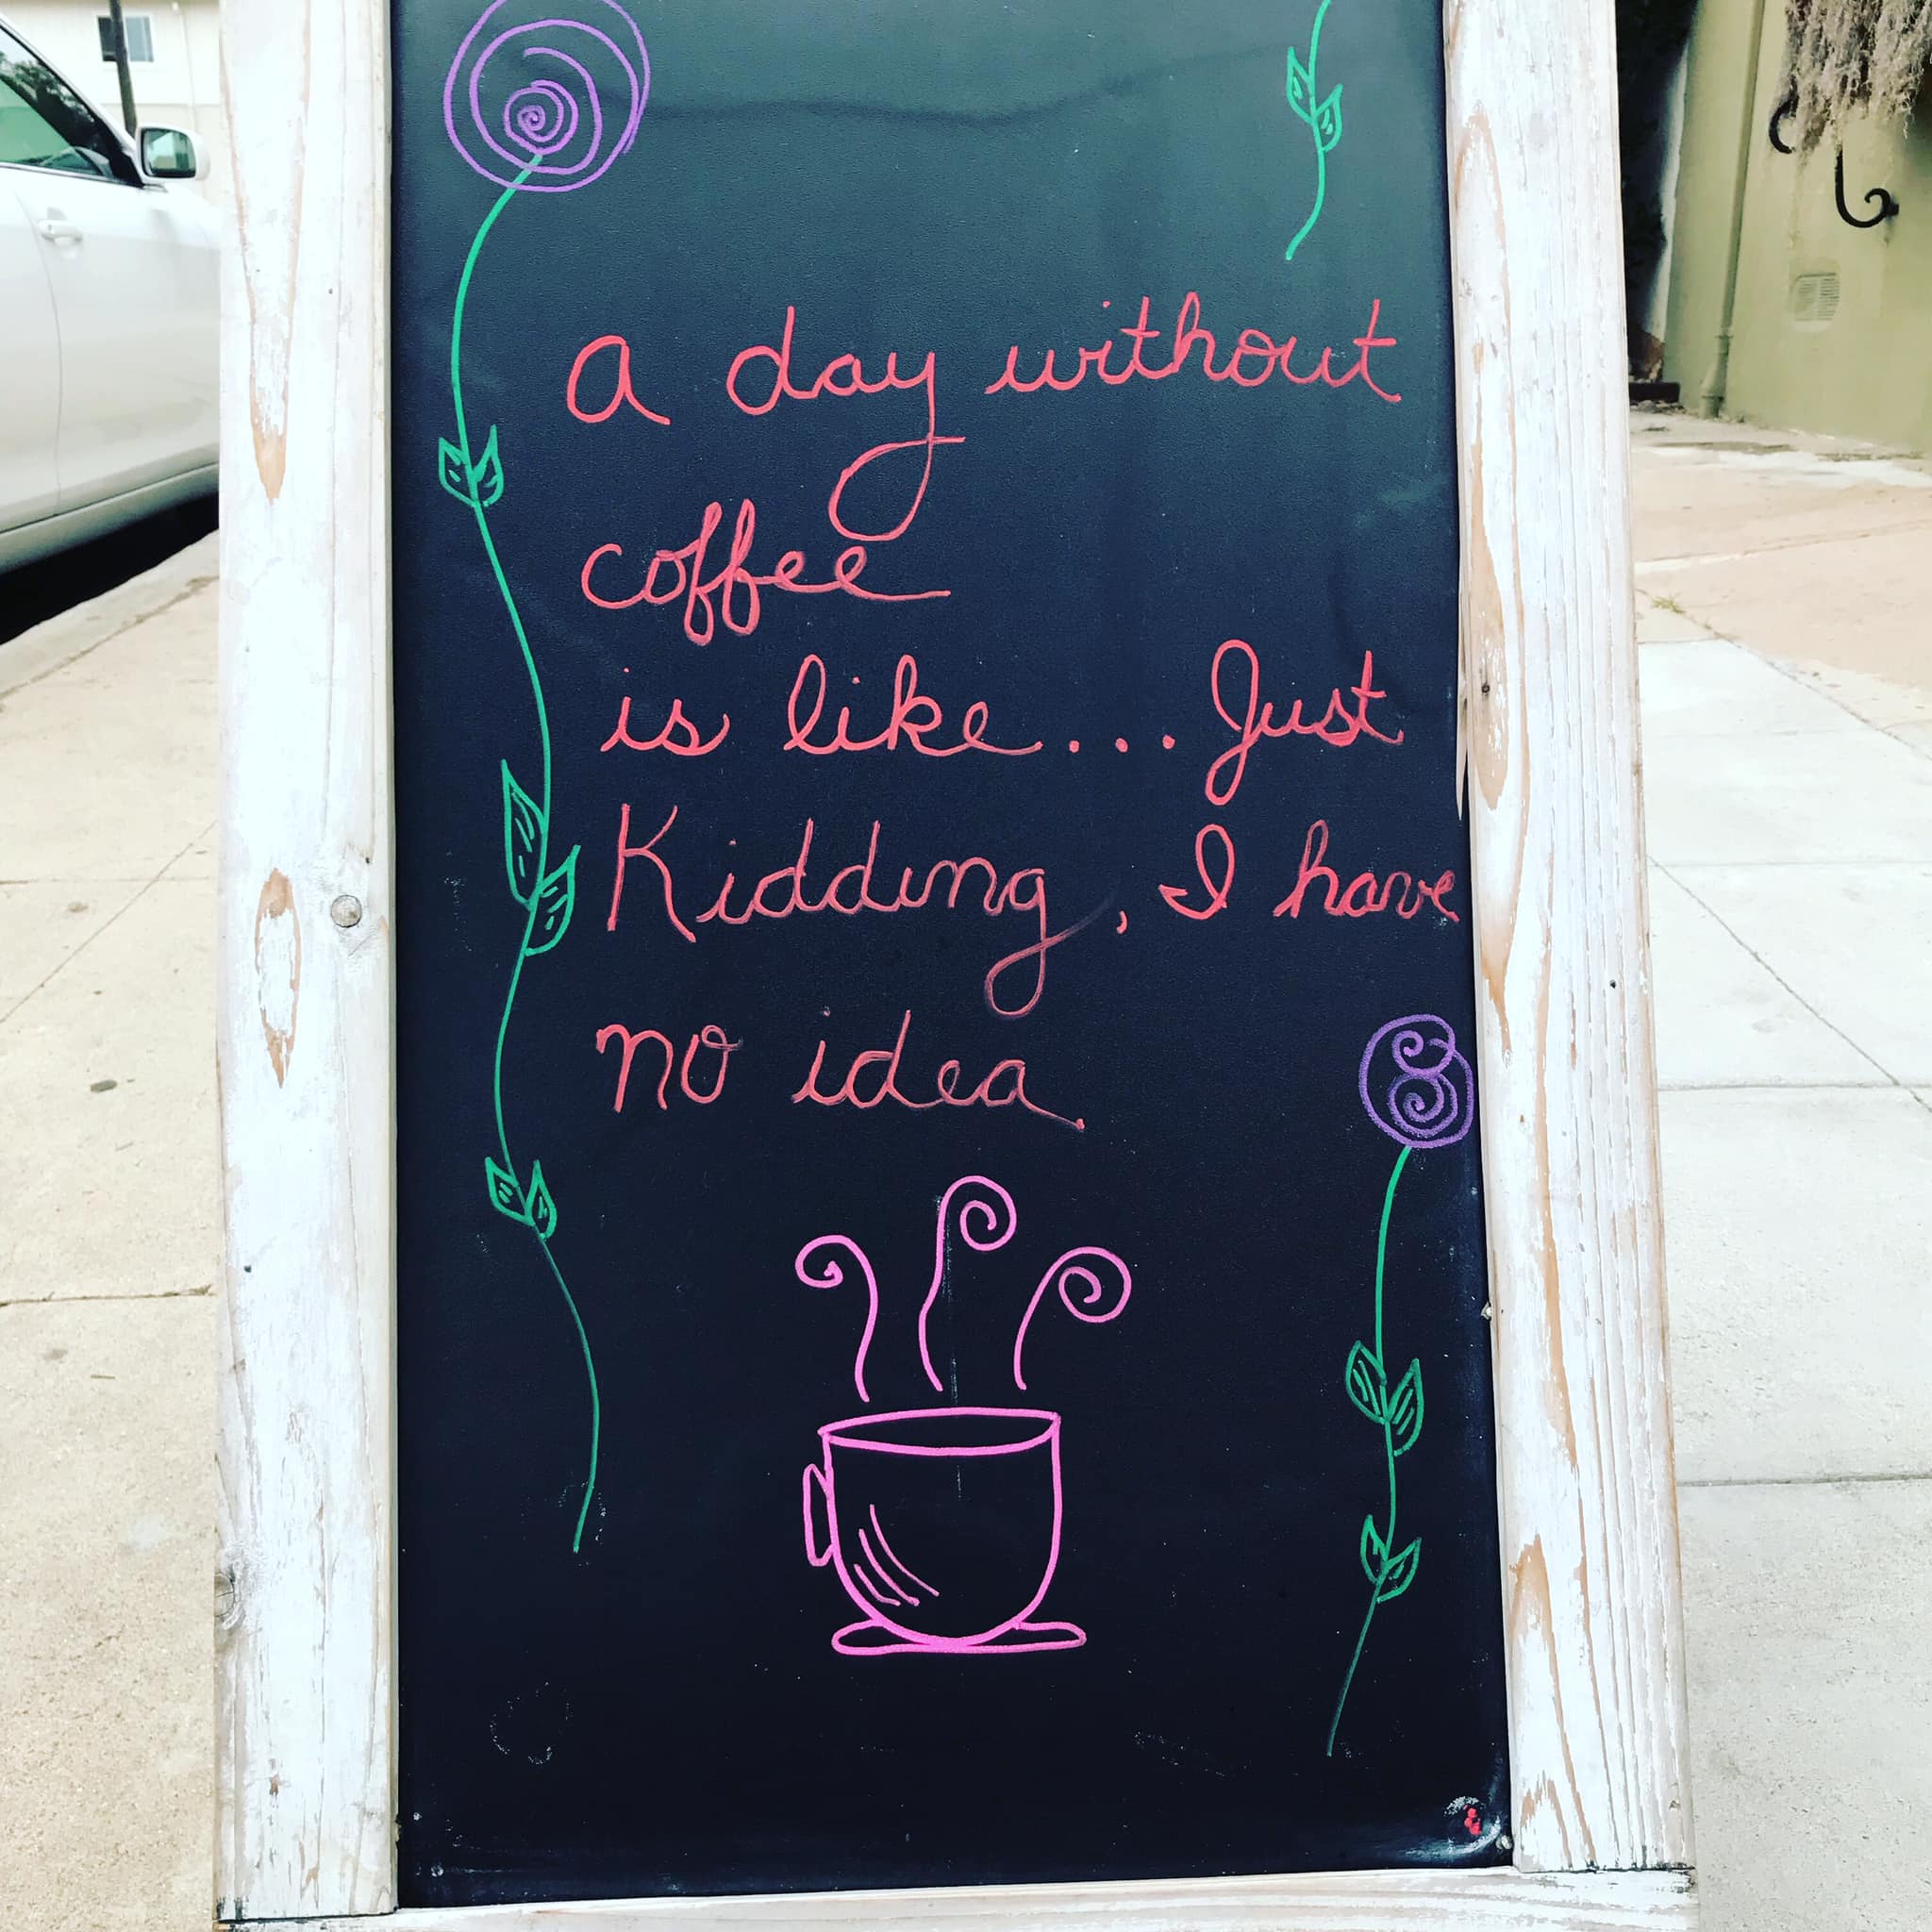 a day without
coffee
is like... Just
Kidding, I have
no idea.